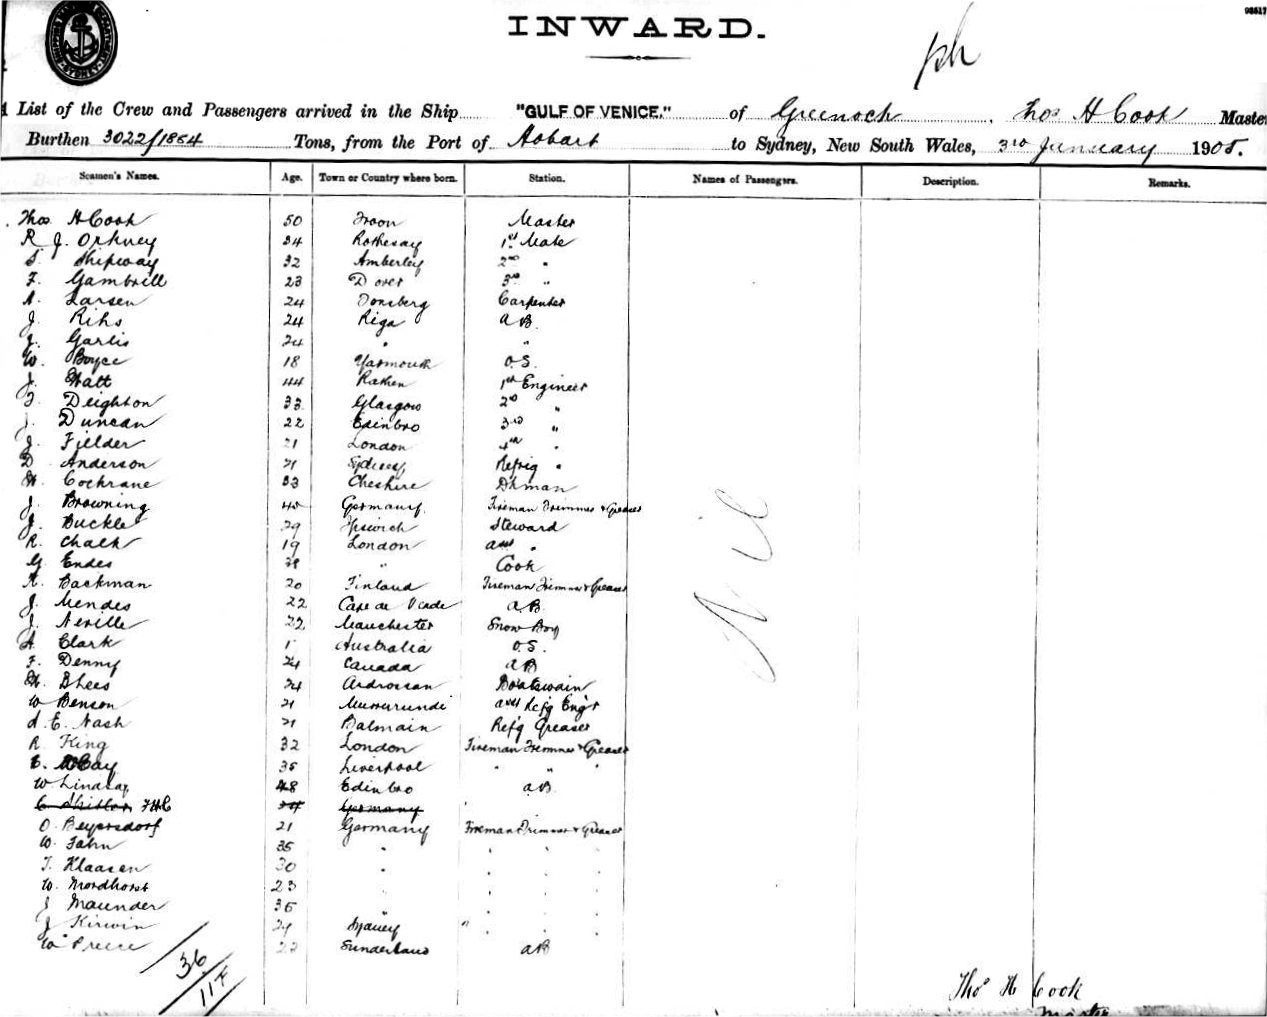 98517
INWARD.
List of the Crew and Passengers arrived in the Ship "GULF OF VENICE," of Greenock, Thos H Cook Master
Burthen 3022/1884 Tons, from the Port of Hobart to Sydney, New South Wales, 3rd January 1905.
Seamen's Names. Age. Town or Country where born. Station. Names of Passengers. Description. Remarks.
Thos H Cook 50 Troon Master
R J. Orkney 34 Rothesay 1st Mate
S. Shipway 32 Amberley 2nd "
F. Gambrill 23 Dover 3rd "
A. Larsen 24 Tonsberg Carpenter
J. Rihs 24 Riga AB.
J. Garlis 24 " "
W. Boyce 18 Yarmouth O.S.
J. Watt 44 Rathen 1st Engineer
Deighton 33 Glasgow 2nd "
J. Duncan 22 Edinbro 3rd "
J. Fielder 21 London 4th "
D. Anderson 21 Sydney Refrig "
H. Cochrane 33 Cheshire Dkman
J. Browning Germany Fireman Trimmer & Greaser
J. Buckle 29 Ipswich Steward
R. Chalk 19 London asst "
G Endes " Cook
K. Backman 20 Finland Fireman Trimmer & Greaser
J. Mendes 22 Cape de Verde AB.
J. Neville 22 Manchester Snow Boy
A. Clark Australia O.S.
F. Denny 24 Canada AB
H. Shees 24 Ardrossan Boatswain
W Benson 21 Murrurundi asst Refg Engr
A. E. Nash 21 Balmain Ref'g Greaser
R. King 32 London Fireman Trimmer & Greaser
E. McCay 35 Liverpool " " "
W Lindsay 48 Edinbro AB.
THC Germany
O. Beyersdorf 21 Germany Fireman Trimmer & Greaser
W. Jahn 35 " " " "
T. Klaasen 30 " " " "
W. Mordhorst 23 " " " "
J Maunder 35 " " " "
J Kirwin Sydney " " "
W Preece 22 Sunderland AB
Nil
36
117
Thos H Cook
Master